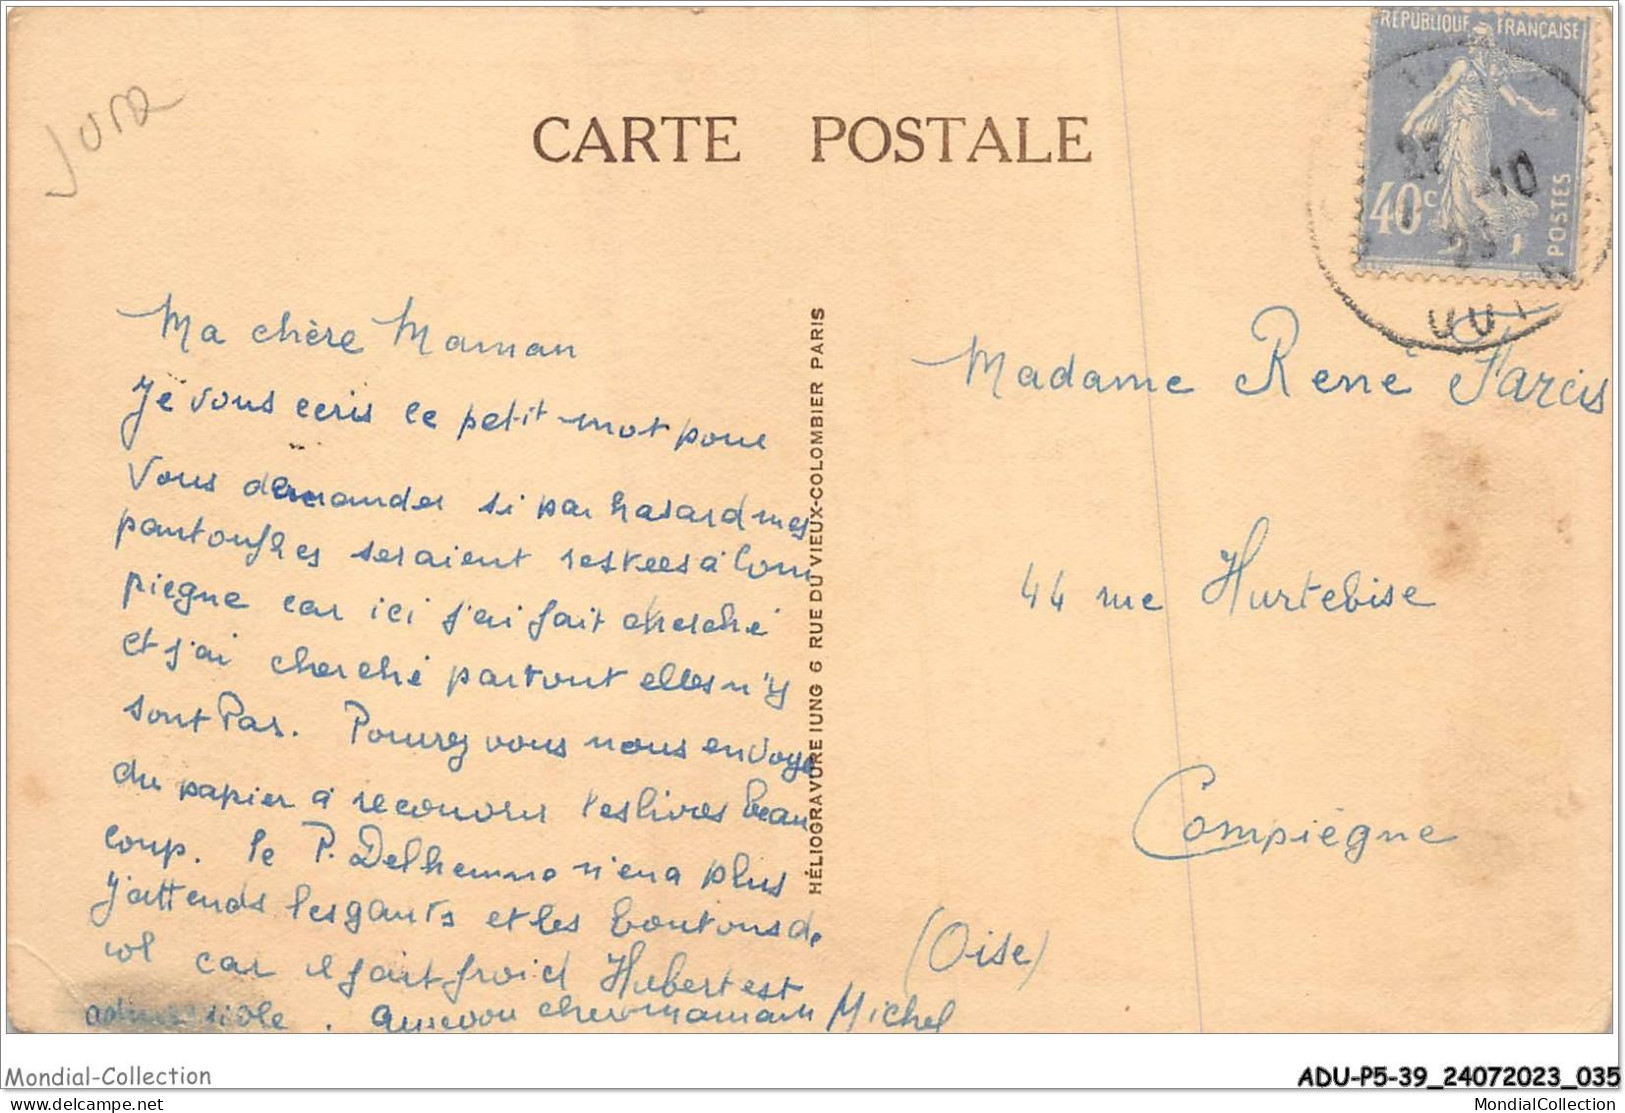 Jura
CARTE POSTALE
RÉPUBLIQUE FRANÇAISE
40c
POSTES
27 -10
Ma chère Maman
Je vous ecris ce petit mot pour
vous demander si par hasard mes
pantoufles seraient restées à Com
piegne car ici j'ai fait cherché
et j'ai cherché partout elles n'y
sont Pas. Pourrez vous nous envoye
du papier à recouvrir les livres beau
coup. le P. Delhemme n'en a plus
J'attends les gants et les boutons de
col car il fait froid Hubert est
admissible. Aurevoir cher maman Michel
HÉLIOGRAVURE IUNG 6 RUE DU VIEUX-COLOMBIER PARIS
Madame René Farcis
44 rue Hurtebise
Compiègne
(Oise)
Mondial-Collection
ADU-P5-39_24072023_035
delcampe.net
MondialCollection